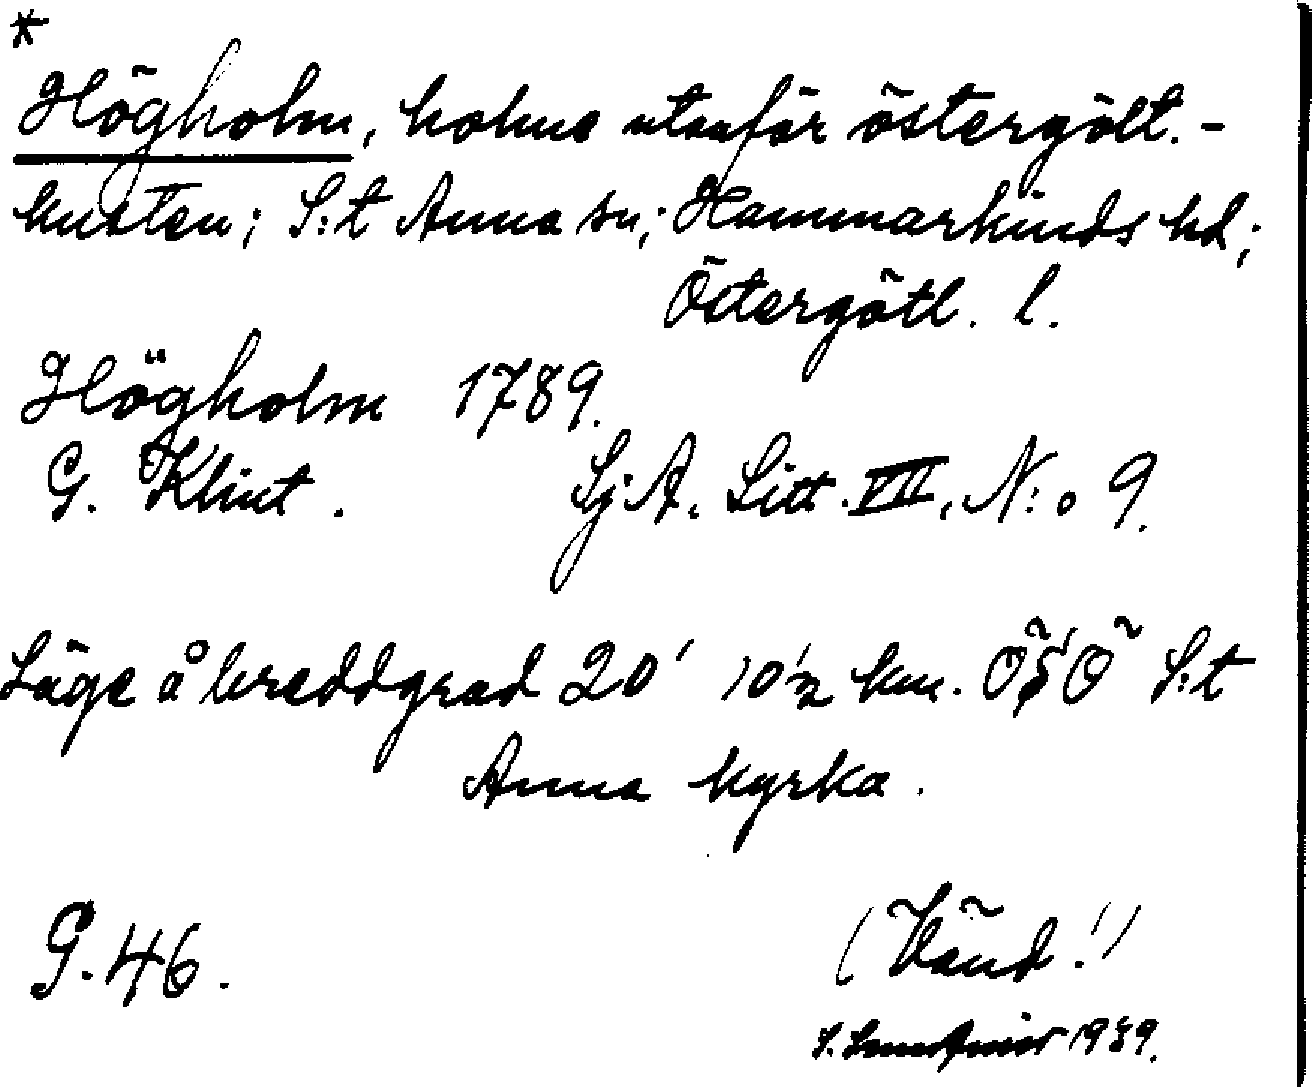 *
Högholm, holme utanför östergötl.-
kusten; S:t Anna sn; Hammarkinds hd;
Östergötl. l.
Högholm 1789.
G. Klint. Sj.A. Litt. VII, N:o 9.
Läge å breddgrad 20' 10 1/2 km. ÖSÖ S:t
Anna kyrka.
G. 46.
(Vänd!)
1939.